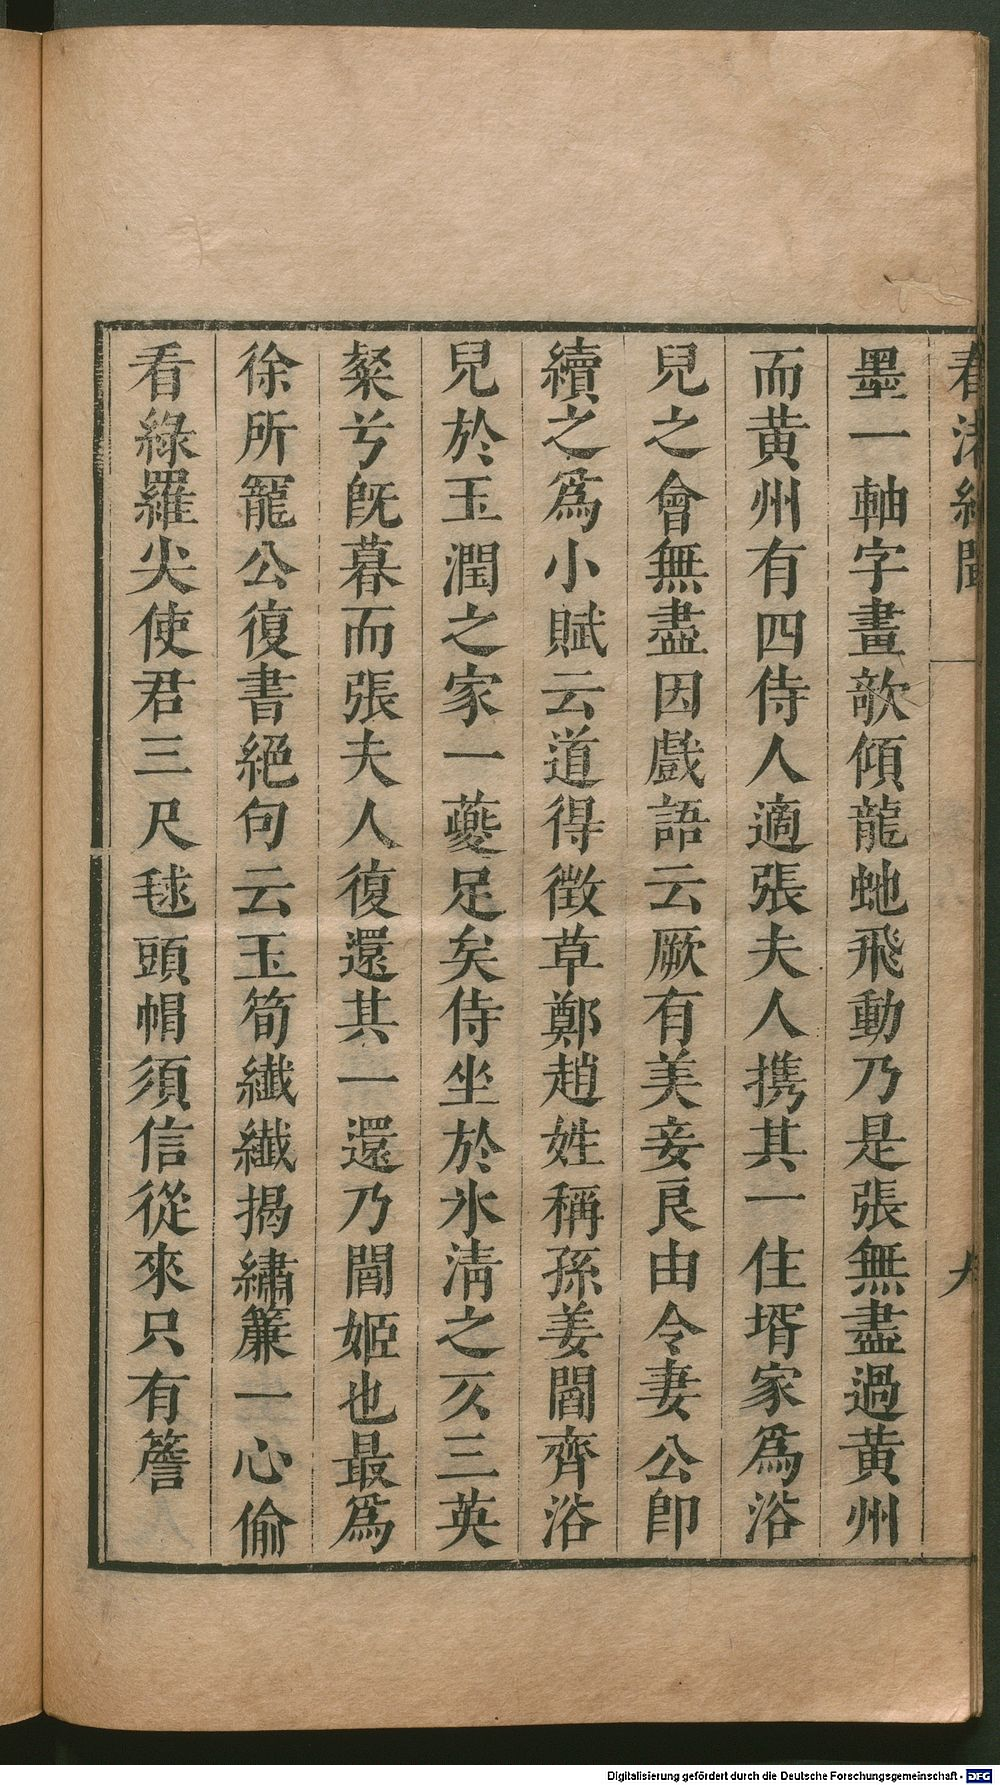 春渚紀聞
墨一軸字畫欹傾龍虵飛動乃是張無盡過黄州
而黄州有四侍人適張夫人携其一住壻家爲浴
兒之會無盡因戲語云厥有美妾良由令妻公卽
續之爲小賦云道得徴草鄭趙姓稱孫姜閻齊浴
兒於玉潤之家一夔足矣侍坐於氷淸之仄三英
粲兮旣暮而張夫人復還其一還乃閻姬也最爲
徐所寵公復書絕句云玉筍纖纖揭繡簾一心偷
看綠羅尖使君三尺毬頭帽須信從來只有簷
Digitalisierung gefördert durch die Deutsche Forschungsgemeinschaft - DFG